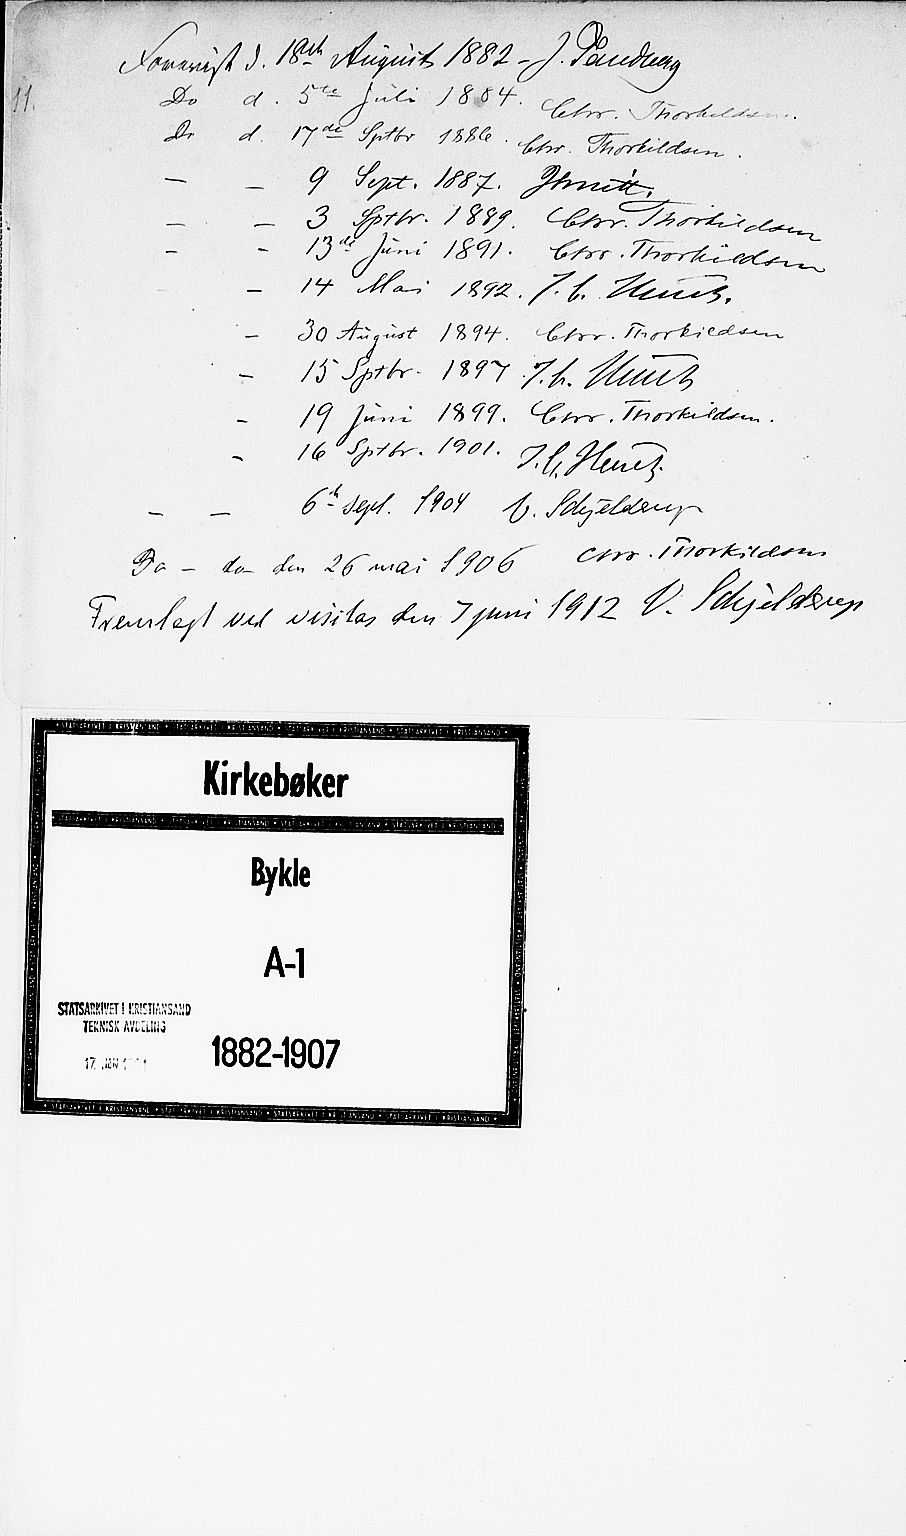 Forevist d. 18de August 1882 - J.
11.
Do d. 5te Juli 1884. Chr. Thorkildsen.
Do d. 17de Sptbr 1886. Chr. Thorkildsen.
— — 9 Sept. 1887.
— — 3 Sptbr. 1889. Chr. Thorkildsen
- - 13de Juni 1891. Chr. Thorkildsen
— 14 Mai 1892. J. C. Heuch.
— 30 August 1894. Chr. Thorkildsen
— 15 Sptbr. 1897 J. C. Heuch
- 19 Juni 1899. Chr. Thorkildsen.
- 16 Sptbr. 1901. J. C. Heuch.
— — 6te Sept. 1904 V. Schjelderup
Do - do den 26 mai 1906 Chr. Thorkildsen
Fremlagt ved visitas den 7 juni 1912 V. Schjelderup
Kirkebøker
Bykle
A-1
STATSARKIVET I KRISTIANSAND
TEKNISK AVDELING
17. JAN
1882-1907